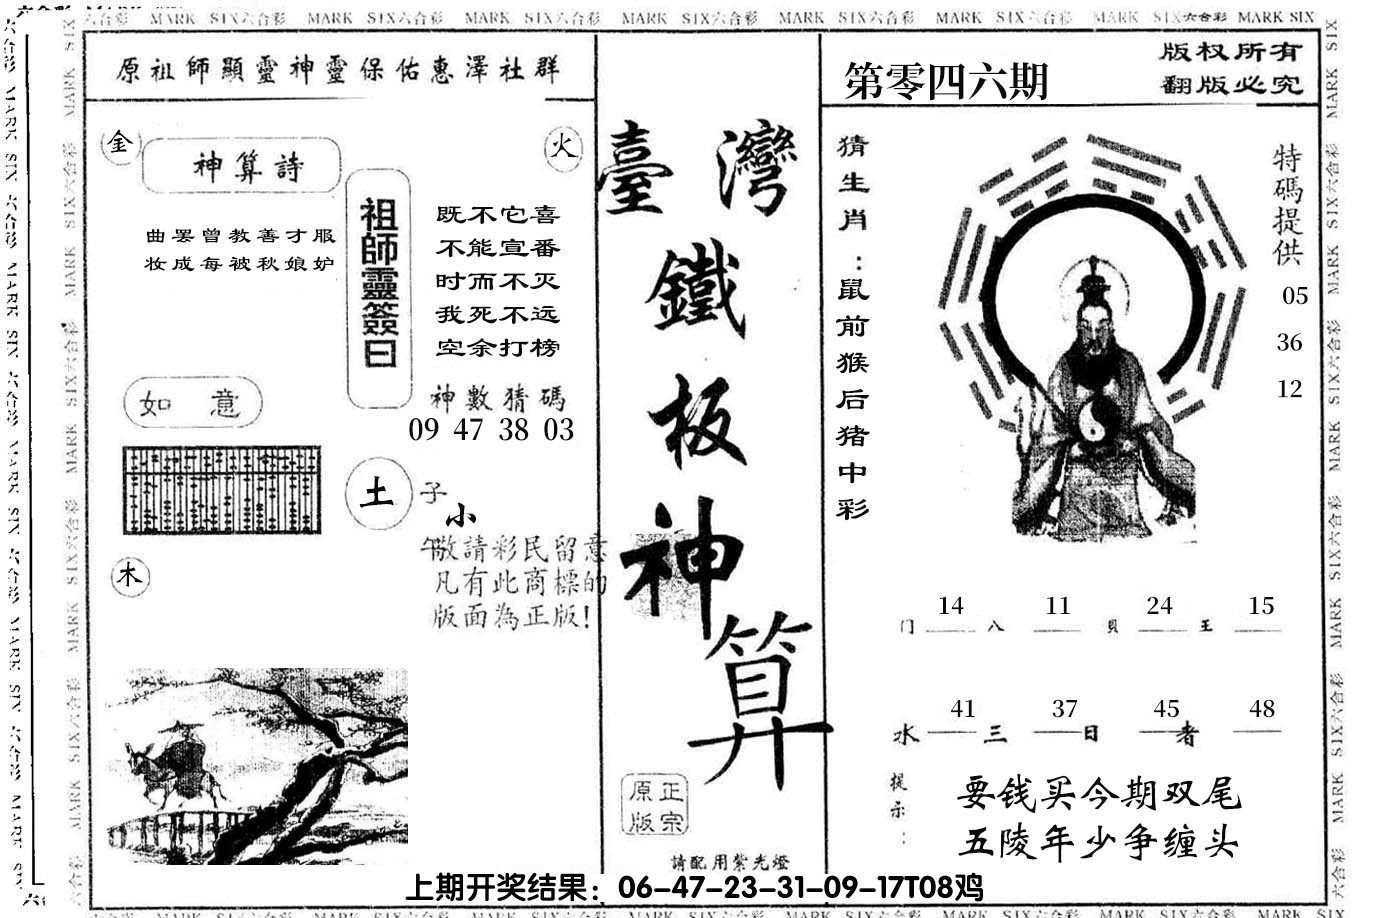 原祖師顯靈神靈保佑惠澤社群
金
神算詩
火
曲罢曾教善才服
妆成每被秋娘妒
祖師靈簽曰
既不它喜
不能宣番
时而不灭
我死不远
空余打榜
神數猜碼
09 47 38 03
如意
土
子
小
午
敬請彩民留意
凡有此商標的
版面為正版!
木
臺灣
鐵板神算
原正
版宗
請配用紫光燈
第零四六期
版权所有
翻版必究
猜生肖:鼠前猴后猪中彩
特碼提供
05
36
12
14 11 24 15
门 八 貝 王
41 37 45 48
水 三 日 者
提示:
要钱买今期双尾
五陵年少争缠头
上期开奖结果:06-47-23-31-09-17T08鸡
MARK SIX六合彩 MARK SIX六合彩 MARK SIX六合彩 MARK SIX六合彩 MARK SIX六合彩 MARK SIX六合彩 MARK SIX六合彩 MARK SIX